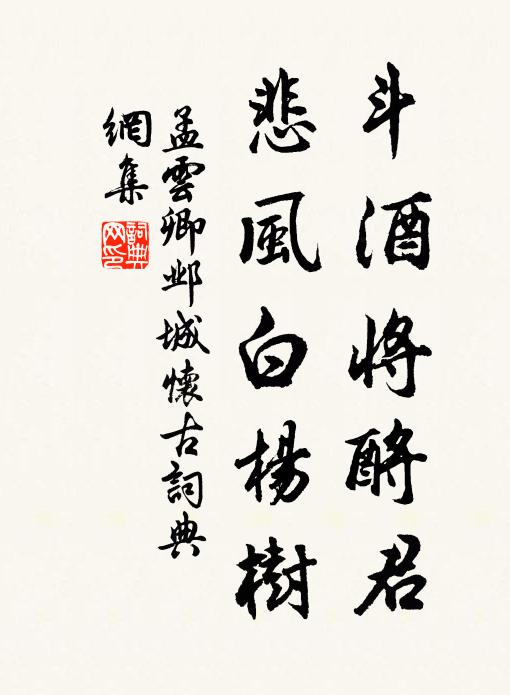 斗酒將酹君
悲風白楊樹
孟雲卿鄴城懷古詞典
網集
詞典
网印